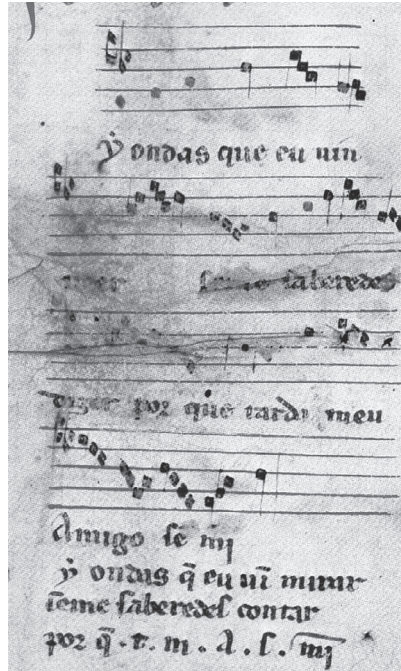 y ondas que eu uin
ueer se me saberedes
dizer por que tarda meu
Amigo sē mī
y ondas q̄ eu uī mirar
seme saberedes contar
por q̄ .t. m. A. s. mī